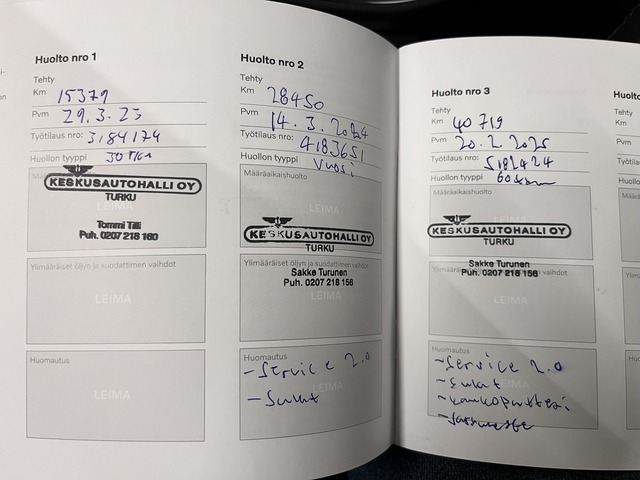 Huolto nro 1
Tehty
Km 15379
Pvm 29.3.23
Työtilaus nro: 3184174
Huollon tyyppi
KESKUSAUTOHALLI OY
TURKU
LEIMA
Tommi Tilli
Puh. 0207 218 160
Ylimääräiset öljyn ja suodattimen vaihdot
LEIMA
Huomautus
LEIMA
Huolto nro 2
Tehty
Km 28450
Pvm 14.3.2024
Työtilaus nro: 4183651
Huollon tyyppi Vuosi
Määräaikaishuolto
KESKUSAUTOHALLI OY
TURKU
Ylimääräiset öljyn ja suodattimen vaihdot
Sakke Turunen
Puh. 0207 218 156
LEIMA
Huomautus
- Service 2.0
- Sulat
LEIMA
Huolto nro 3
Tehty
Km 40719
Pvm 20.2.2025
Työtilaus nro: 5182424
Huollon tyyppi
Määräaikaishuolto
KESKUSAUTOHALLI OY
TURKU
Sakke Turunen
Puh. 0207 218 156
LEIMA
Huomautus
- Service 2.0
- Sulat
LEIMA
Tehty
Km
Pvm